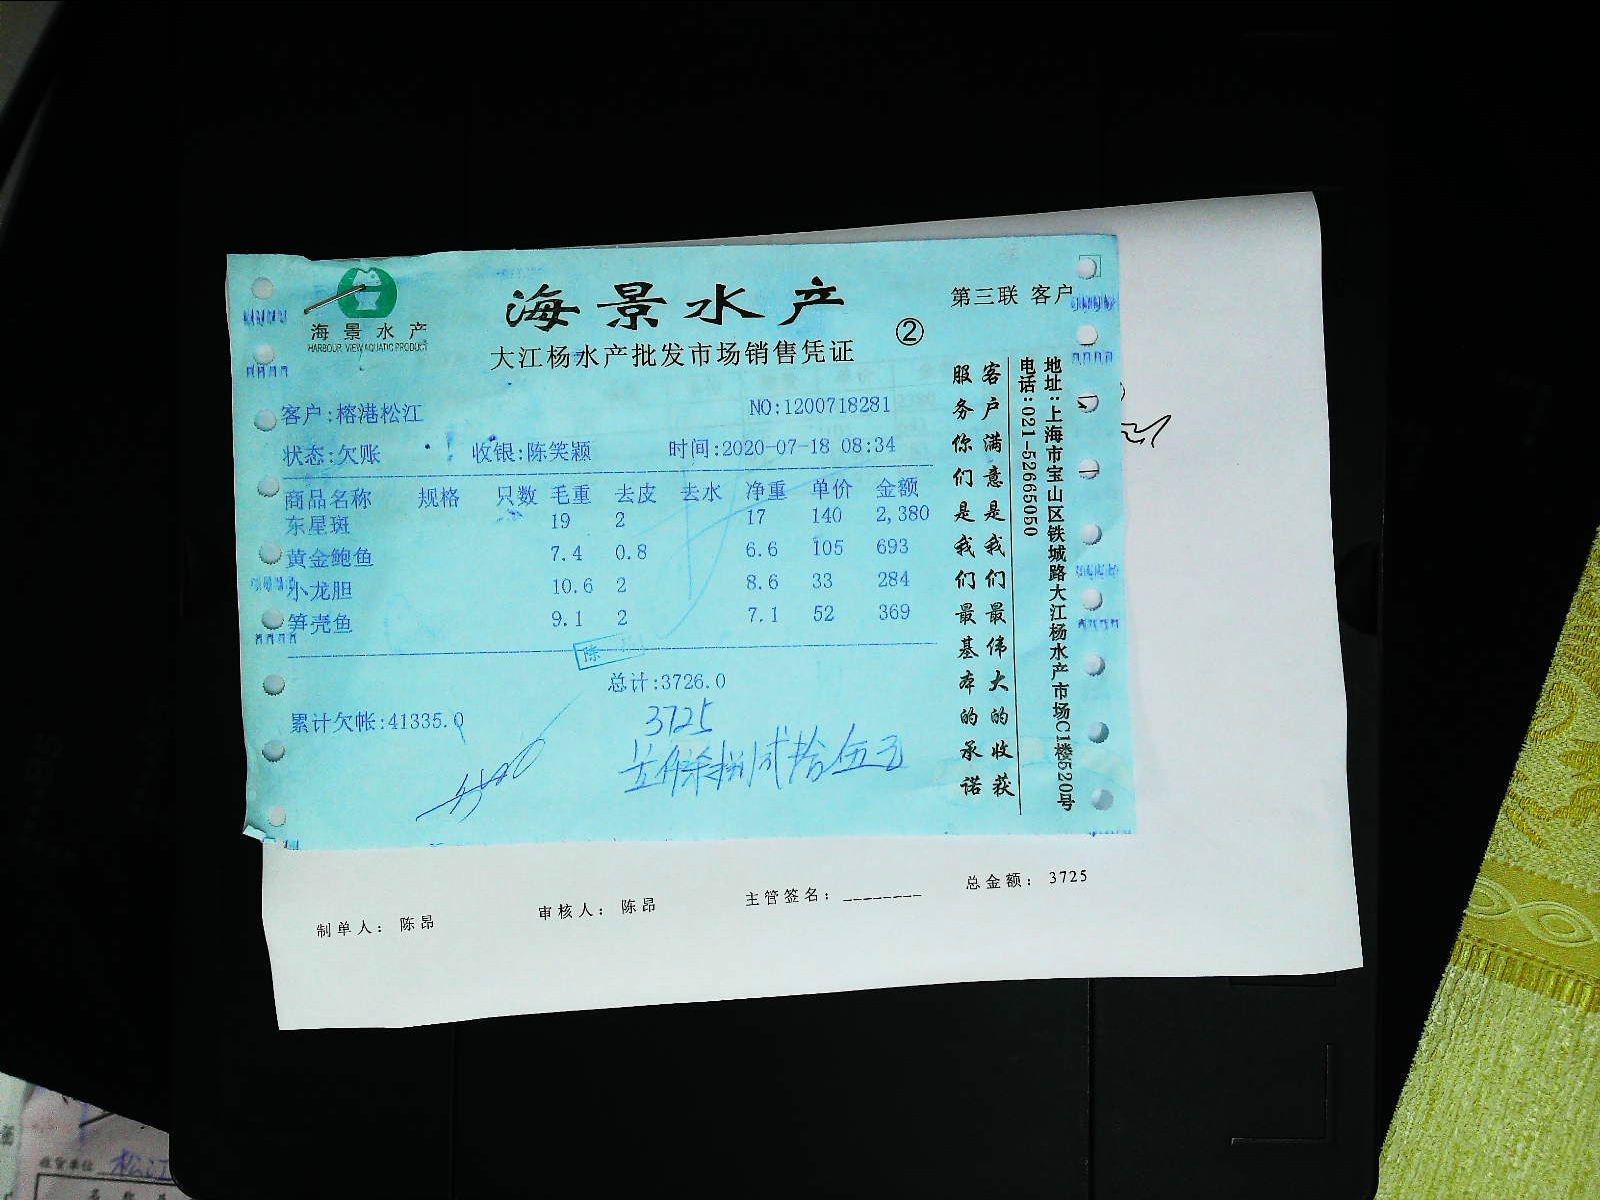 海景水产
HARBOUR VIEW AQUATIC PRODUCT
海景水产
大江杨水产批发市场销售凭证
②
第三联 客户
客户:榕港松江
NO:1200718281
状态:欠账 收银:陈笑颖 时间:2020-07-18 08:34
商品名称 规格 只数 毛重 去皮 去水 净重 单价 金额
东星斑 19 2 17 140 2,380
黄金鲍鱼 7.4 0.8 6.6 105 693
小龙胆 10.6 2 8.6 33 284
笋壳鱼 9.1 2 7.1 52 369
陈
总计:3726.0
累计欠帐:41335.0
3725
贰拾伍元
客户满意是我们最伟大的收获
服务你们是我们最基本的承诺
地址:上海市宝山区铁城路大江杨水产市场C1楼520号
电话:021-52665050
制单人: 陈昂
审核人: 陈昂
主管签名: ________
总金额: 3725
松江